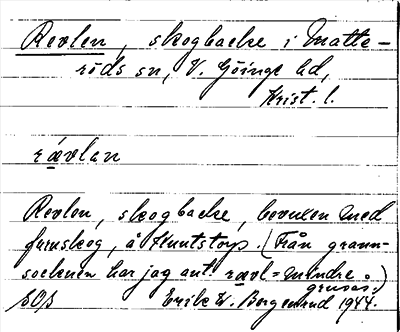 Revlen, skogbacke i Matte-
röds sn, V. Göinge hd,
Krist. l.
rävlan
Revlen, skogbacke, bevuxen med
furuskog, å Knutstorp. (Från grann-
socknen har jag ant. rävl = mindre
grusås.)
SOS Erik W. Bergenrud 1944.